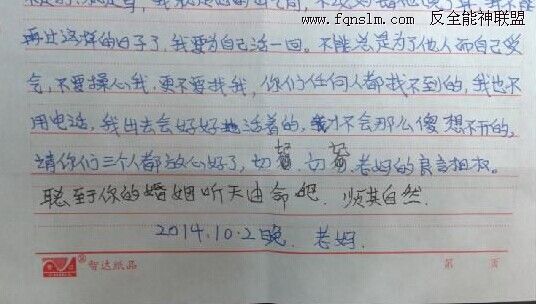 www.fqnslm.com 反全能神联盟
再过这样的日子了,我要为自己活一回。不能总是为了他人而自己受
气,不要操心我,更不要找我,你们任何人都找不到的,我也不
用电话,我出去会好好地活着的,我才不会那么傻想不开的,
请你们三个人都放心好了,切留切留,老妈的良言相权。
聪至于你的婚姻听天由命吧.顺其自然.
2014.10.2晚. 老妈.
智达纸品
第 页